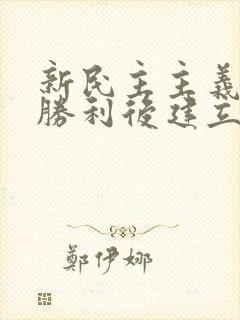 新民主主義
勝利後建立
鄭伊娜